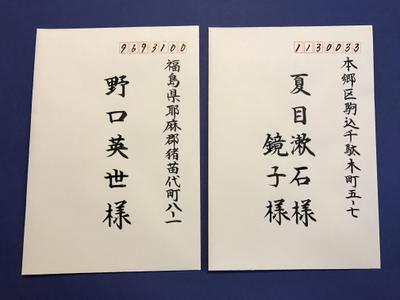 9693100
福島県耶麻郡猪苗代町八-一
野口英世様
1130033
本郷区駒込千駄木町五-七
夏目漱石様
鏡子様